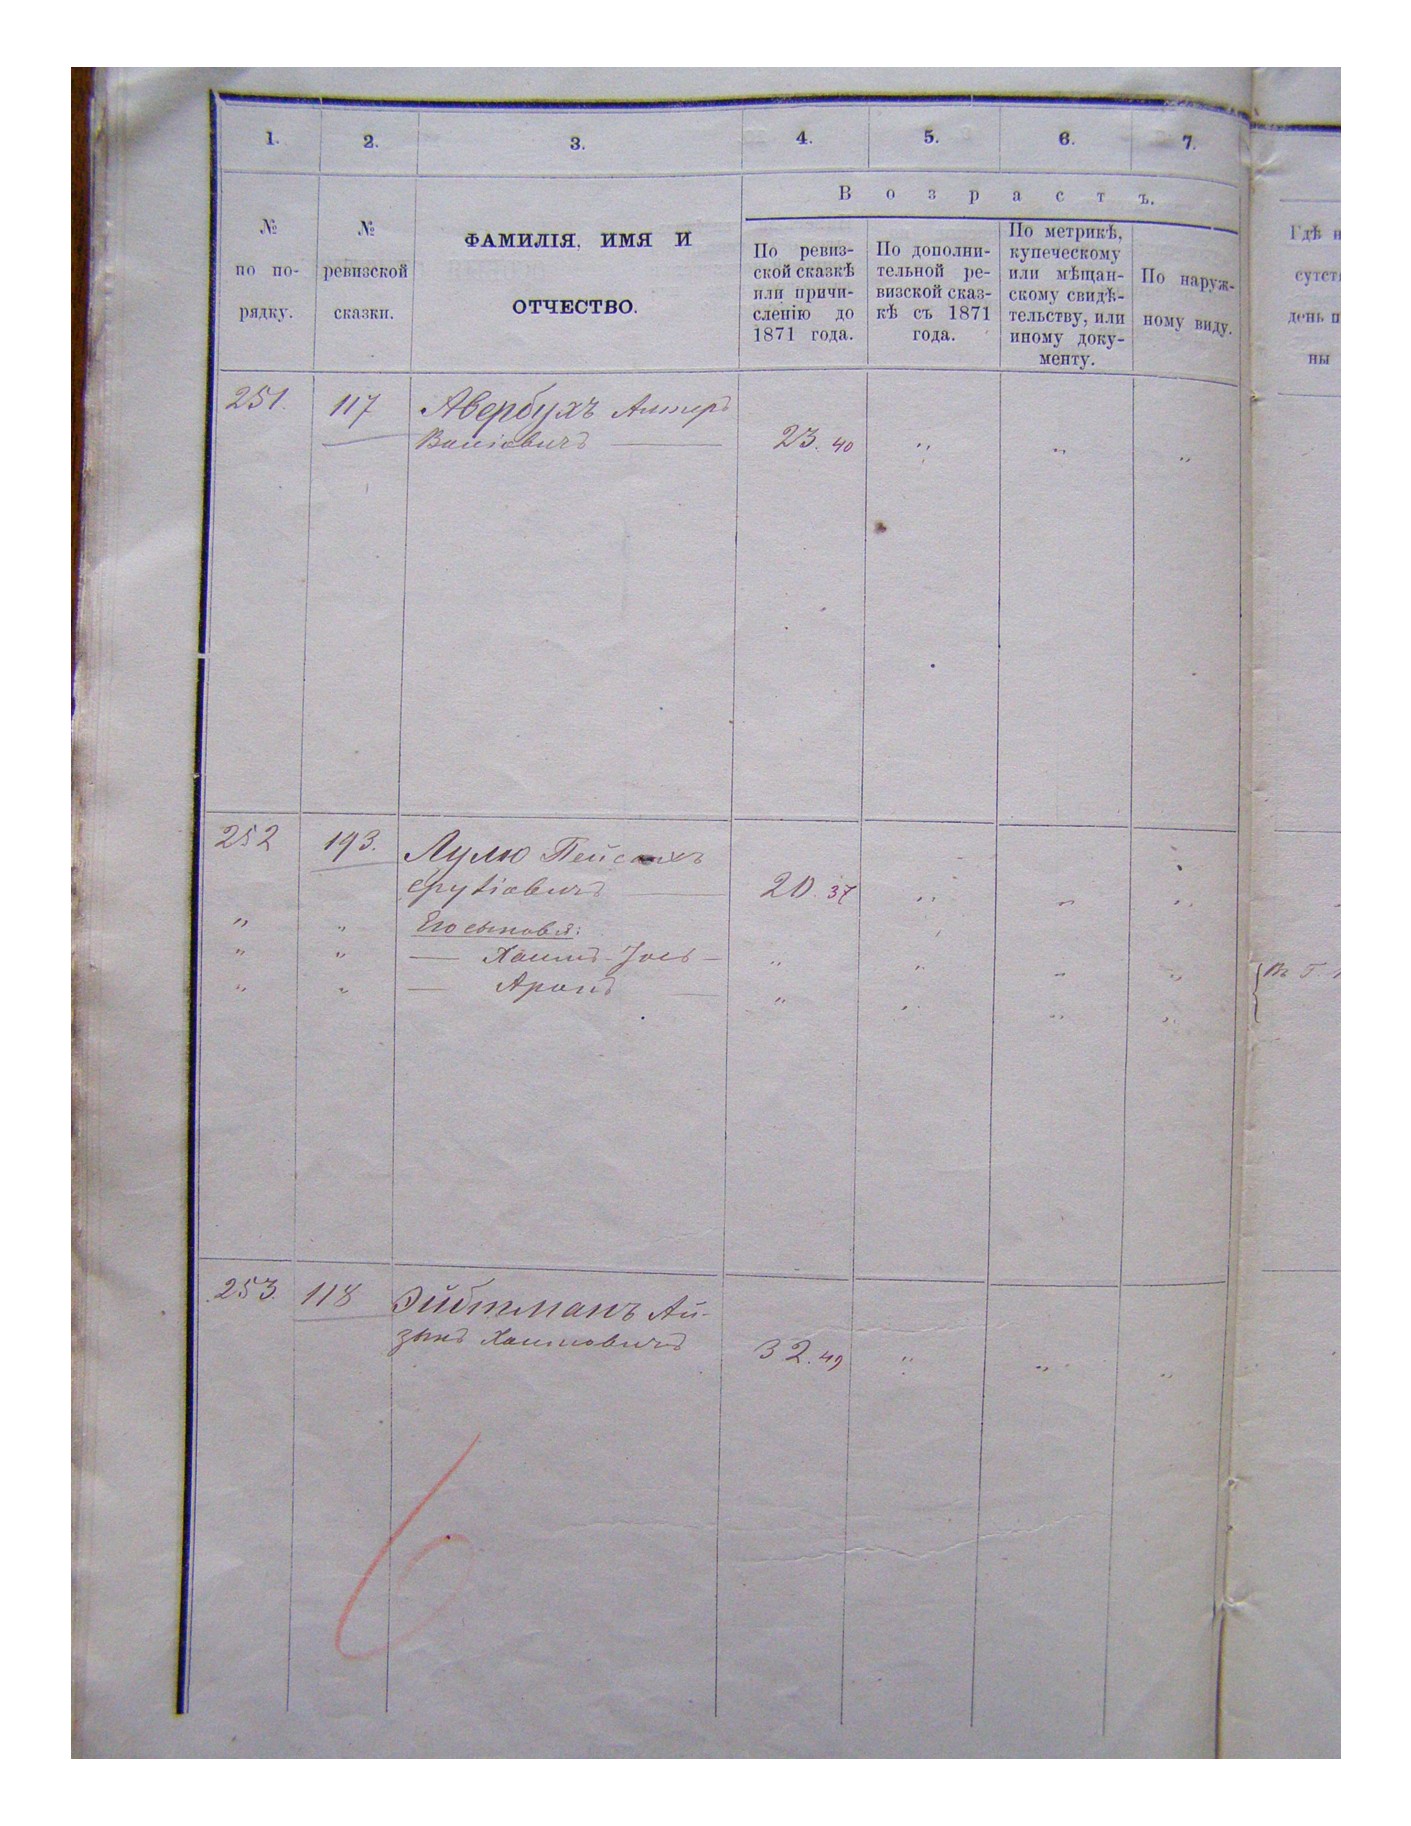 1. 2. 3. 4. 5. 6. 7.
Возрастъ.
№ по порядку.
№ ревизской сказки.
ФАМИЛІЯ, ИМЯ И
ОТЧЕСТВО.
По ревиз-
ской сказкѣ
или причи-
сленію до
1871 года.
По дополни-
тельной ре-
визской сказ-
кѣ съ 1871
года.
По метрикѣ,
купеческому
или мѣщан-
скому свидѣ-
тельству, или
иному доку-
менту.
По наруж-
ному виду.
Гдѣ
день
ны
251. 117 Авербухъ Алтеръ
23. 40 " " "
252 193. Лулю Пейсахъ
20. 37 " " "
" " Его сыновья:
" " — Хаимъ-Іось — " " " "
" " — Аронъ — " " " "
Въ Г.
253. 118 Эйбтманъ Ай-
зикъ Хаимовичъ 32. 49 " " "
6